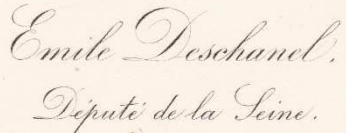 Emile Deschanel.
Député de la Seine.